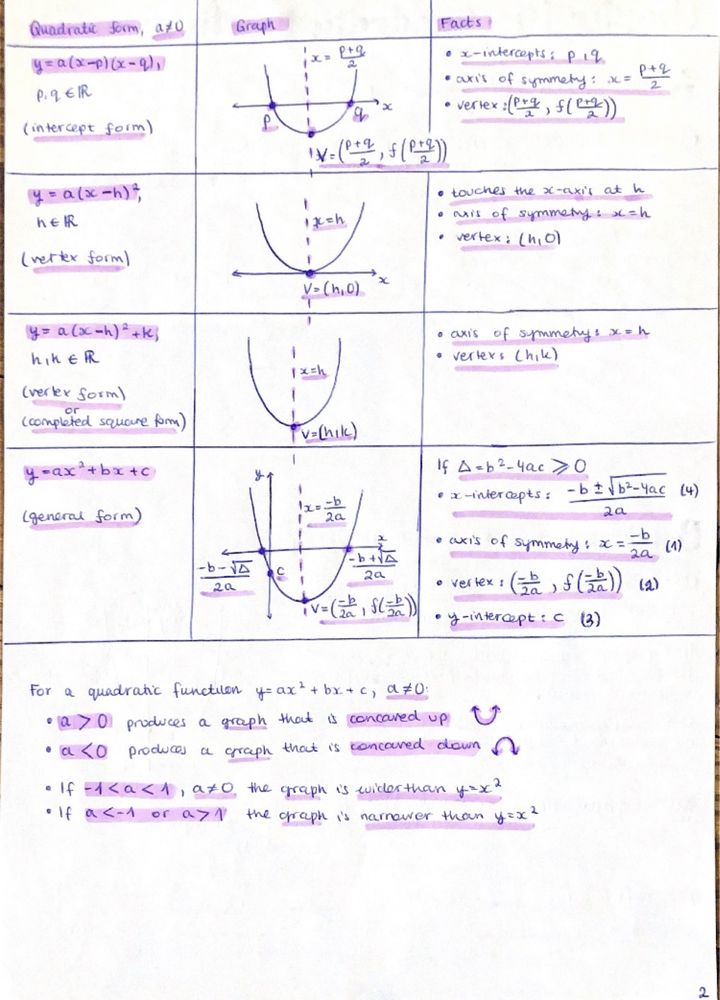 Quadratic form, a≠0 Graph Facts
y = a(x-p)(x-q),
p,q ∈ ℝ
(intercept form)
x = (p+q)/2
p q x
V = ((p+q)/2, f((p+q)/2))
• x-intercepts: p, q
• axis of symmetry: x = (p+q)/2
• vertex: ((p+q)/2, f((p+q)/2))
y = a(x-h)²,
h ∈ ℝ
(vertex form)
x=h
x
V=(h,0)
• touches the x-axis at h
• axis of symmetry: x=h
• vertex: (h,0)
y = a(x-h)²+k,
h,k ∈ ℝ
(vertex form)
or
(completed square form)
x=h
V=(h,k)
• axis of symmetry: x=h
• vertex: (h,k)
y=ax²+bx+c
(general form)
y
x = -b/2a
x
(-b-√Δ)/2a c (-b+√Δ)/2a
V=(-b/2a, f(-b/2a))
If Δ=b²-4ac ⩾ 0
• x-intercepts: (-b ± √(b²-4ac))/2a (4)
• axis of symmetry: x = -b/2a (1)
• vertex: (-b/2a, f(-b/2a)) (2)
• y-intercept: c (3)
For a quadratic function y=ax²+bx+c, a≠0:
• a > 0 produces a graph that is concaved up
• a < 0 produces a graph that is concaved down
• If -1<a<1, a≠0 the graph is wider than y=x²
• If a<-1 or a>1 the graph is narrower than y=x²
2